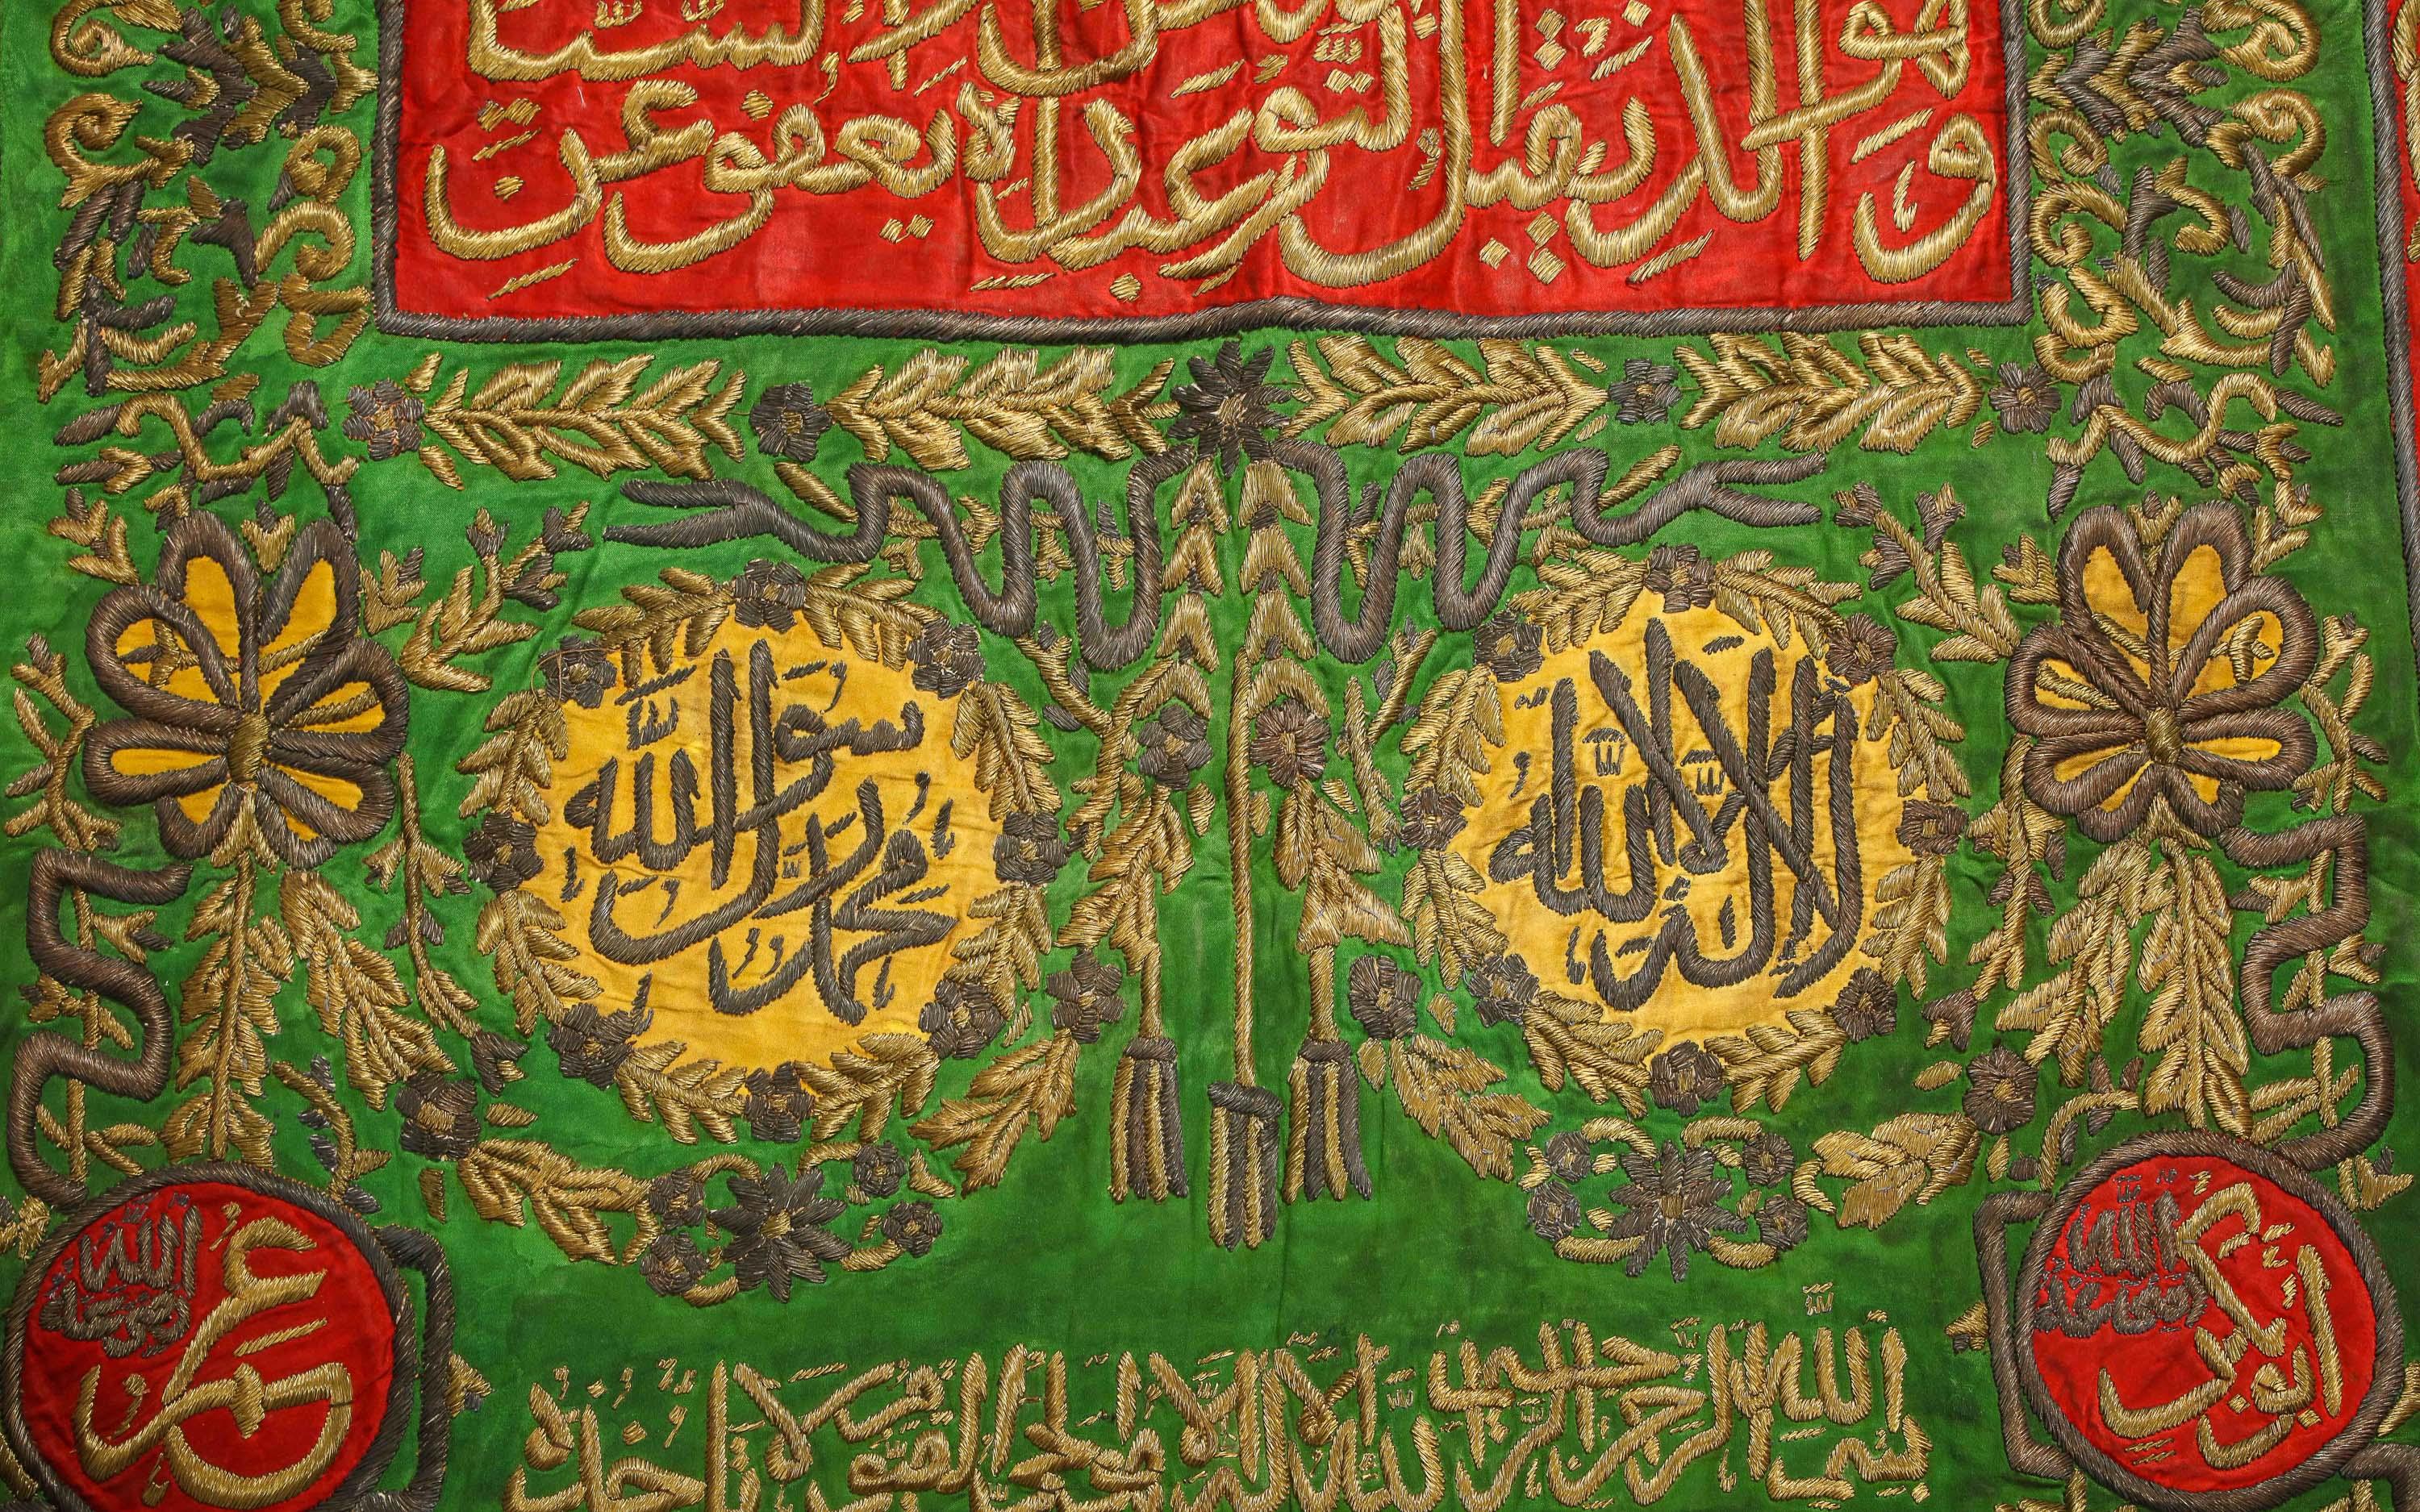 وهو الذي يقبل التوبة عن عباده ويعفو عن السيئات
لا اله الا الله
محمد رسول الله
ابو بكر رضي الله عنه
عمر رضي الله
بسم الله الرحمن الرحيم الله لا اله الا هو الحي القيوم لا تاخذه